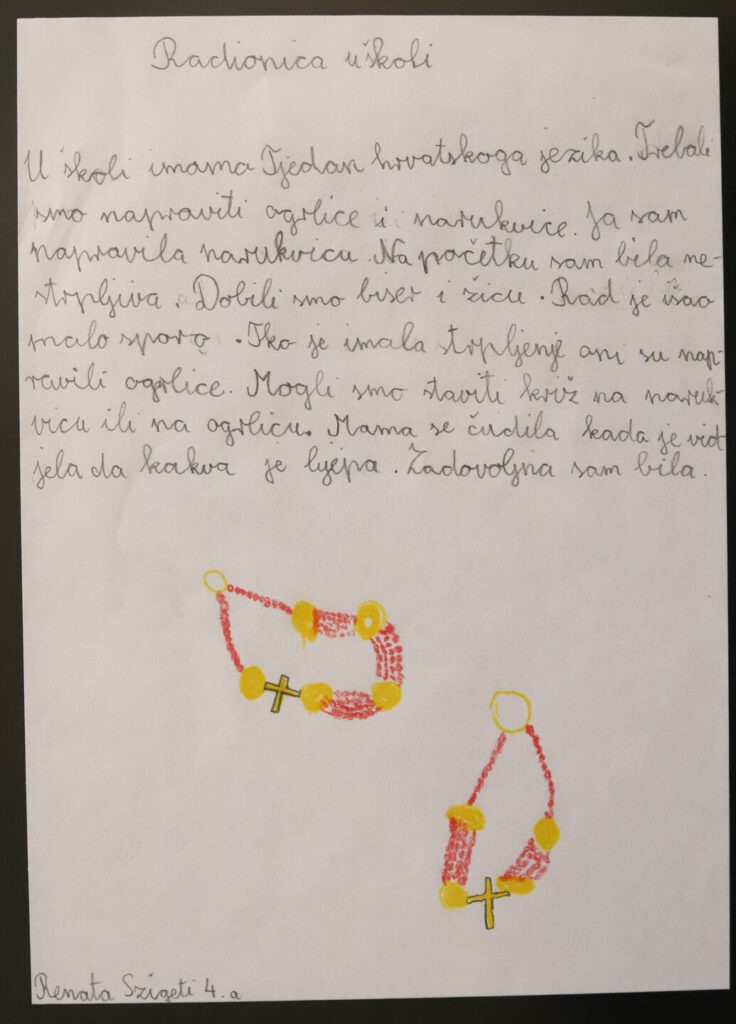 Radionica u školi
U školi imama Tjedan hrvatskoga jezika. Trebali
smo napraviti ogrlice i narukvice. Ja sam
napravila narukvicu. Na početku sam bila ne-
strpljiva. Dobili smo biser i žicu. Rad je išao
malo sporo. Tko je imala strpljenje oni su nap-
ravili ogrlice. Mogli smo staviti križ na naruk-
vicu ili na ogrlicu. Mama se čudila kada je vid
jela da kakva je ljepa. Zadovoljna sam bila.
Renata Szigeti 4.a